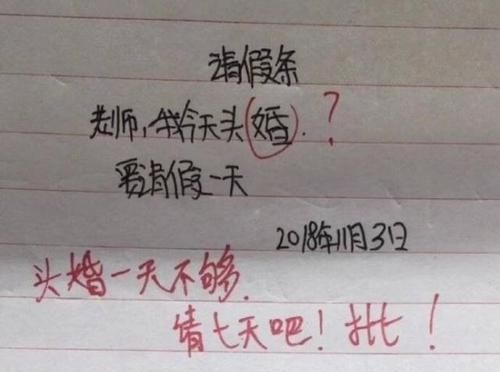 请假条
老师,我今天头婚.?
要请假一天
2018年11月3日
头婚一天不够.
请七天吧!批!